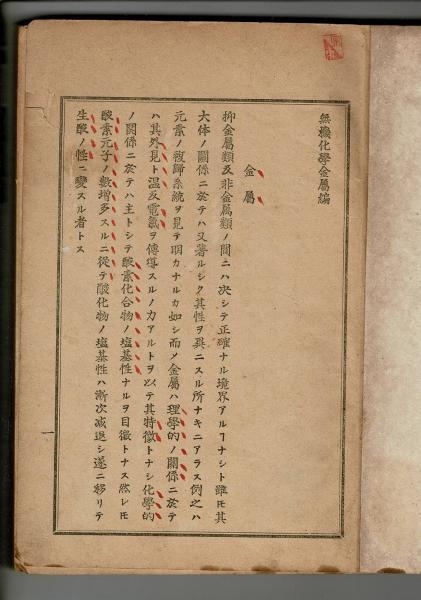 無機化學金屬編
金屬
抑金屬類及非金属類ノ間ニハ决シテ正確ナル境界アルヿナシト雖𪜈其
大体ノ關係ニ於テハ又著ルシク其性ヲ異ニスル所ナキニアラス例之ハ
元素ノ複歸系統ヲ見テ明カナルカ如シ而〆金属ハ理學的ノ關係ニ於テ
ハ其外見ト溫及電氣ヲ傳導スルノ力アルトヲ以テ其特徵トナシ化學的
ノ關係ニ於テハ主トシテ酸素化合物ノ塩基性ナルヲ目徵トナス然レ𪜈
酸素元子ノ數增多スルニ從テ酸化物ノ塩基性ハ漸次减退シ遂ニ移リテ
生酸ノ性ニ變スル者トス
一